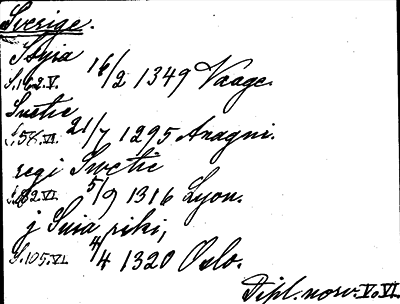 Sverige.
Styia
S.162.V. 16/2 1349 Vaage.
Svecie
S.58.VI. 21/7 1295 Anagni.
regi Swecie
S.82.VI. 5/9 1316 Lyon.
j Suia riki,
S.105.VI. 4/4 1320 Oslo.
Dipl. norv. V. VI.